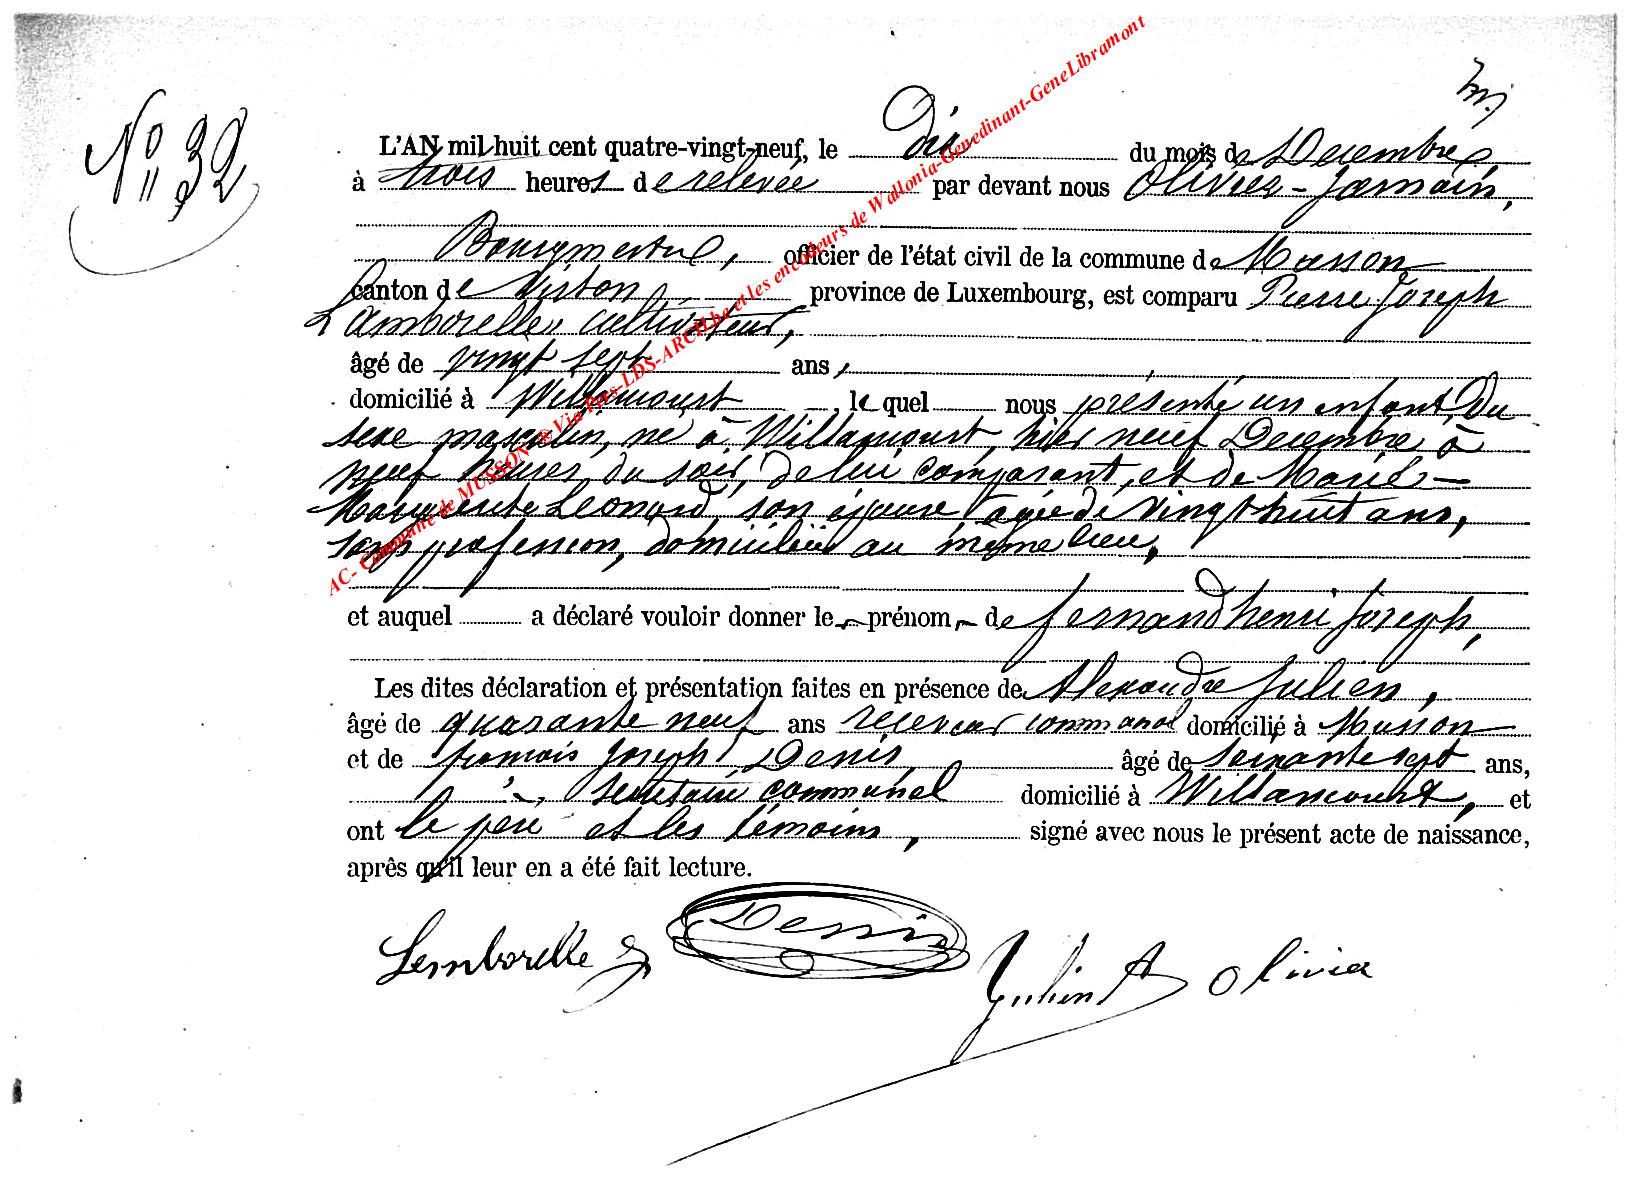 N° 32
L'AN mil huit cent quatre-vingt-neuf, le Dix du mois de Décembre,
à trois heures de relevée par devant nous Olivier-Jamain,
Bourgmestre, officier de l'état civil de la commune de Musson
canton de Virton province de Luxembourg, est comparu Pierre Joseph
Lamborelle, cultivateur,
âgé de vingt sept ans,
domicilié à Willancourt, lequel nous présenté un enfant Du
sexe masculin, né à Willancourt, hier neuf Décembre à
neuf heures du soir, de lui comparant, et de Marie-
Marguerite Léonard son épouse agée de vingt huit ans,
sans profession, domiciliée au même lieu,
et auquel a déclaré vouloir donner le prénom de fernand henri Joseph,
Les dites déclaration et présentation faites en présence de Alexandre Julien,
âgé de quarante neuf ans receveur communal domicilié à Musson
et de françois Joseph Denis âgé de soixante sept ans,
secrétaire communal domicilié à Willancourt, et
ont le père et les témoins, signé avec nous le présent acte de naissance,
après qu'il leur en a été fait lecture.
Lamborelle Denis Julien A Olivier
AC- Commune de MUSSON ® Via Pros-LDS-ARCH.be et les encodeurs de Wallonia-Genedinant-GeneLibramont